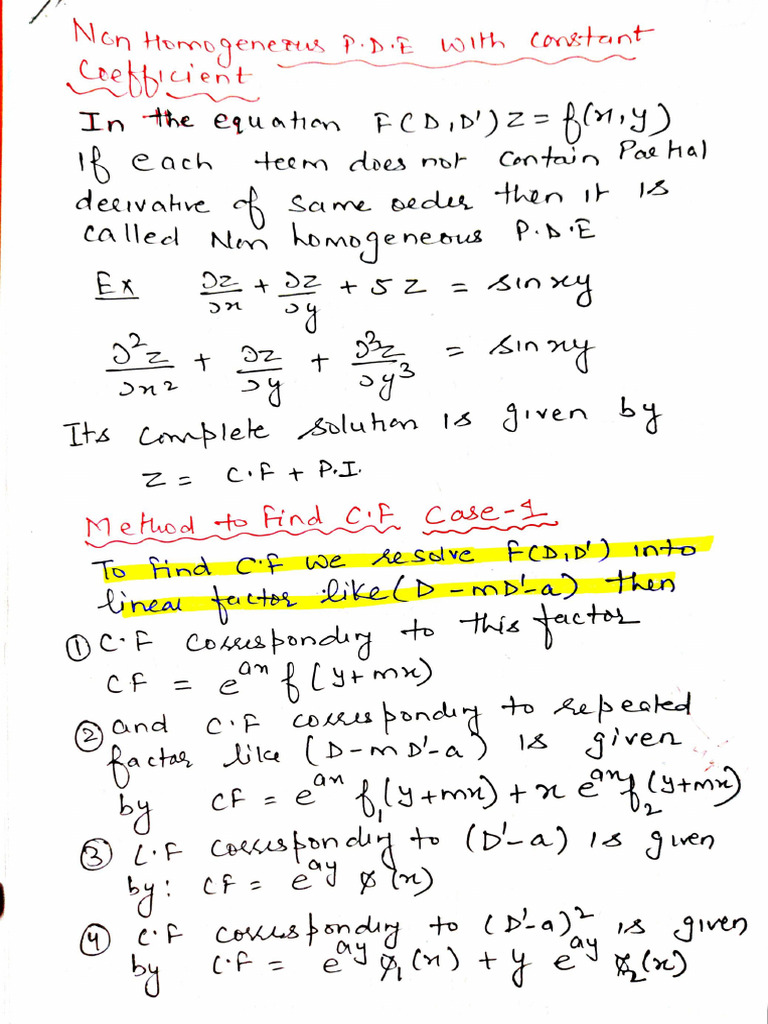 Non Homogeneous P.D.E with constant
Coefficient
In the equation F(D,D')Z = f(x,y)
If each term does not contain Partial
derivative of same order then it is
called Non homogeneous P.D.E
Ex ∂z/∂x + ∂z/∂y + 5z = sin xy
∂²z/∂x² + ∂z/∂y + ∂³z/∂y³ = sin xy
Its complete solution is given by
Z = C.F + P.I.
Method to find C.F Case-1
To find C.F we resolve F(D,D') into
linear factor like (D - mD' - a) then
① C.F corresponding to this factor
CF = e^{ax} f(y+mx)
② and C.F corresponding to repeated
factor like (D - mD' - a) is given
by CF = e^{ax} f₁(y+mx) + x e^{ax} f₂(y+mx)
③ C.F corresponding to (D'-a) is given
by: CF = e^{ay} φ(x)
④ C.F corresponding to (D'-a)² is given
by C.F = e^{ay} φ₁(x) + y e^{ay} φ₂(x)